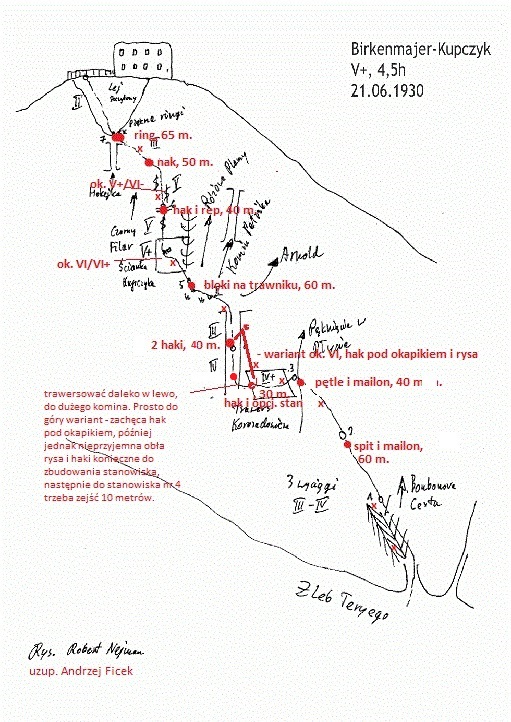 Birkenmajer-Kupczyk
V+, 4,5h
21.06.1930
Lej
II
Piękne ringi
ring, 65 m.
7
x
III
hak, 50 m.
ok. V+/VI-
V
Hokejka
Różowe Plamy
6
hak i rep, 40 m.
Czarny
Filar
V
V+
Komin
Arnold
ok. VI/VI+
Ścianka
Kupczyka
5
bloki na trawniku, 60 m.
III
2 haki, 40 m.
Pęknięcie w
IV
- wariant ok. VI, hak pod okapikiem i rysa
IV+
3
pętle i mailon, 40 m
30 m.
hak i opcj. stan
Trawers
Komarnickich
trawersować daleko w lewo,
do dużego komina. Prosto do
góry wariant - zachęca hak
pod okapikiem, później
jednak nieprzyjemna obła
rysa i haki konieczne do
zbudowania stanowiska,
następnie do stanowiska nr 4
trzeba zejść 10 metrów.
2
spit i mailon,
60 m.
3 wyciągi
III - IV
1
Bombonowa
Cesta
Żleb Teryego
Rys. Robert Nejman
uzup. Andrzej Ficek